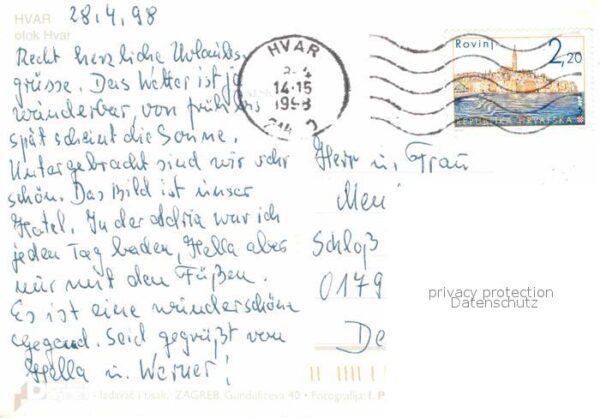 HVAR
otok Hvar
28.4.98
Recht herzliche Urlaubs-
grüsse. Das Wetter ist ja
wunderbar, von früh bis
spät scheint die Sonne.
Untergebracht sind wir sehr
schön. Das Bild ist unser
Hotel. In der Adria war ich
jeden Tag baden, Hella aber
nur mit den Füßen.
Es ist eine wunderschöne
Gegend. Seid gegrüßt von
Hella u. Werner!
HVAR
14-15
1998
Rovinj
2,20
REPUBLIKA HRVATSKA
Herr u. Frau
Schloß
0179
De
privacy protection
Datenschutz
Izdavač i tisak, ZAGREB, Gundulićeva 40 • Fotografija: f. P